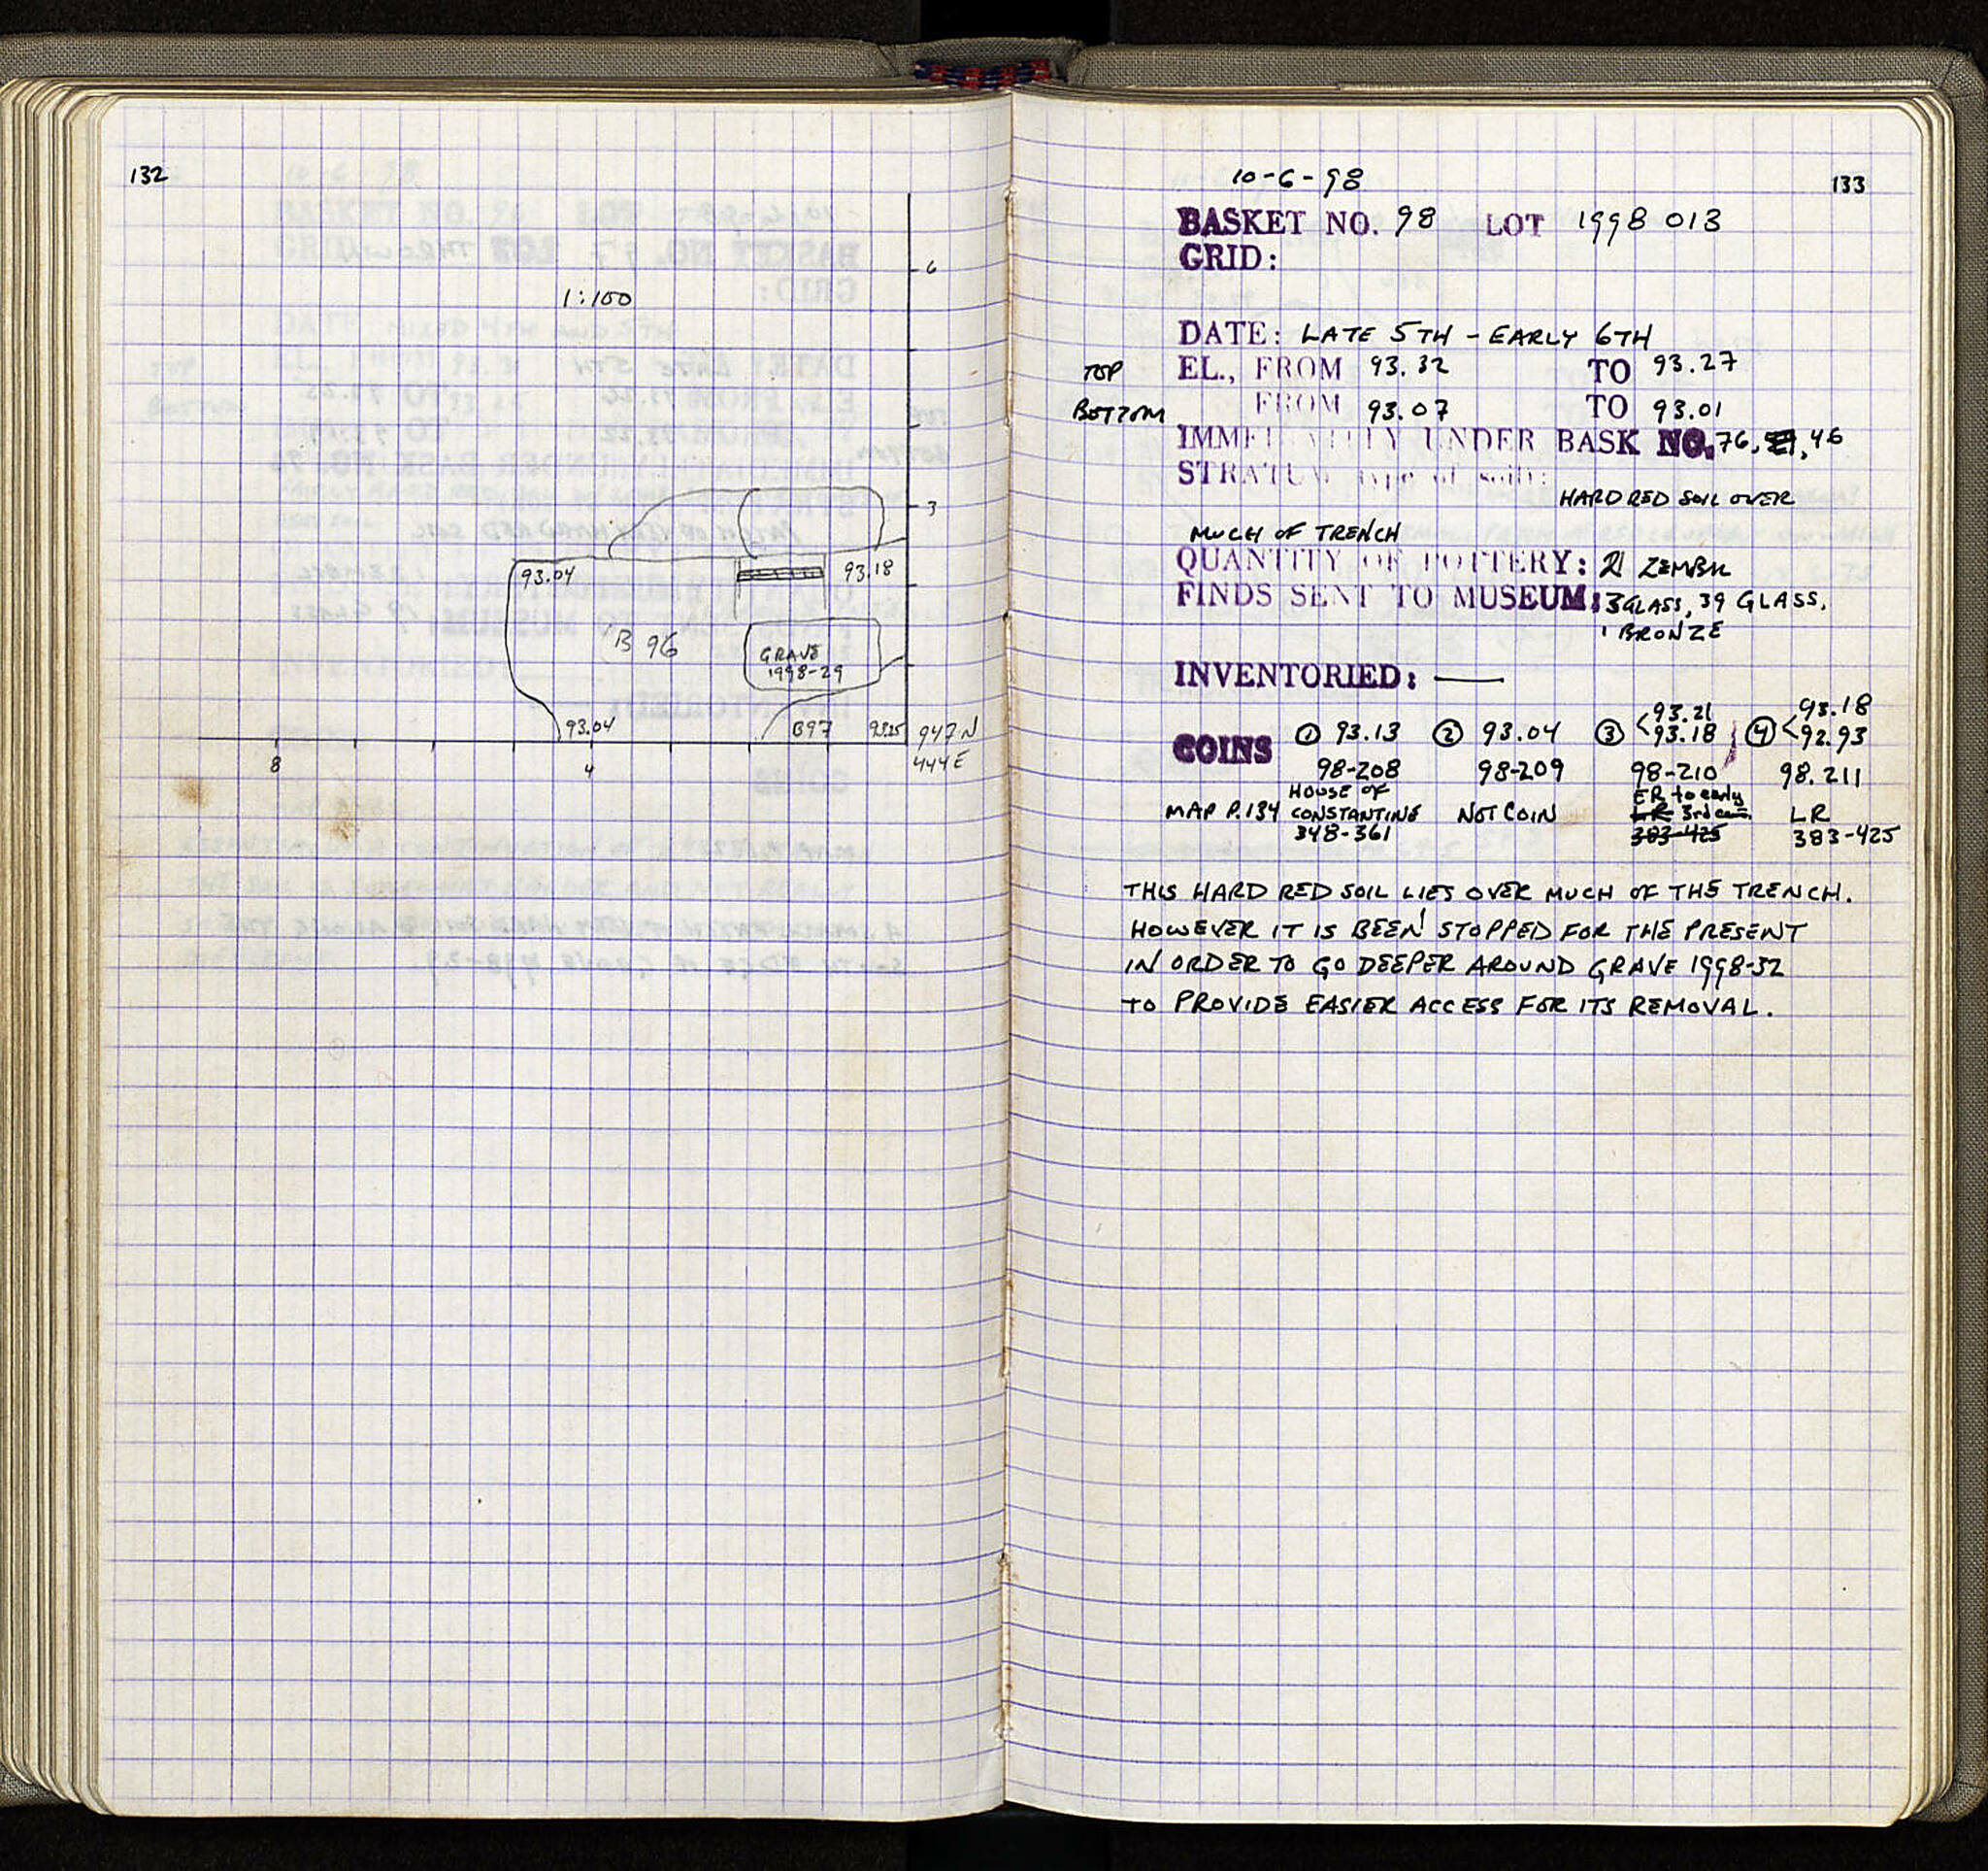 132
1:100
6
3
93.04
93.18
B 96
GRAVE
1998-29
93.04
B97
93.25
947 N
444 E
8
4
10-6-98
133
BASKET NO. 98 LOT 1998 013
GRID:
DATE: LATE 5TH - EARLY 6TH
TOP EL., FROM 93.32 TO 93.27
BOTTOM FROM 93.07 TO 93.01
IMMEDIATELY UNDER BASK NO. 76, 46
STRATUM type of soil:
HARD RED SOIL OVER
MUCH OF TRENCH
QUANTITY OF POTTERY: ZEMBIL
FINDS SENT TO MUSEUM: 3 GLASS, 39 GLASS,
1 BRONZE
INVENTORIED: —
COINS ① 93.13 ② 93.04 ③ <93.21 93.18 ④ <93.18 92.93
98-208 98-209 98-210 98.211
MAP P.134 HOUSE OF CONSTANTINE 348-361 NOT COIN ER to early LR 3rd cen. 383-425 LR 383-425
THIS HARD RED SOIL LIES OVER MUCH OF THE TRENCH.
HOWEVER IT IS BEEN STOPPED FOR THE PRESENT
IN ORDER TO GO DEEPER AROUND GRAVE 1998-32
TO PROVIDE EASIER ACCESS FOR ITS REMOVAL.